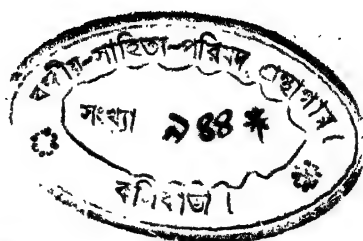 বঙ্গীয়-সাহিত্য-পরিষদ গ্রন্থাগার।
সংখ্যা ৯৪৪*
কলিকাতা।